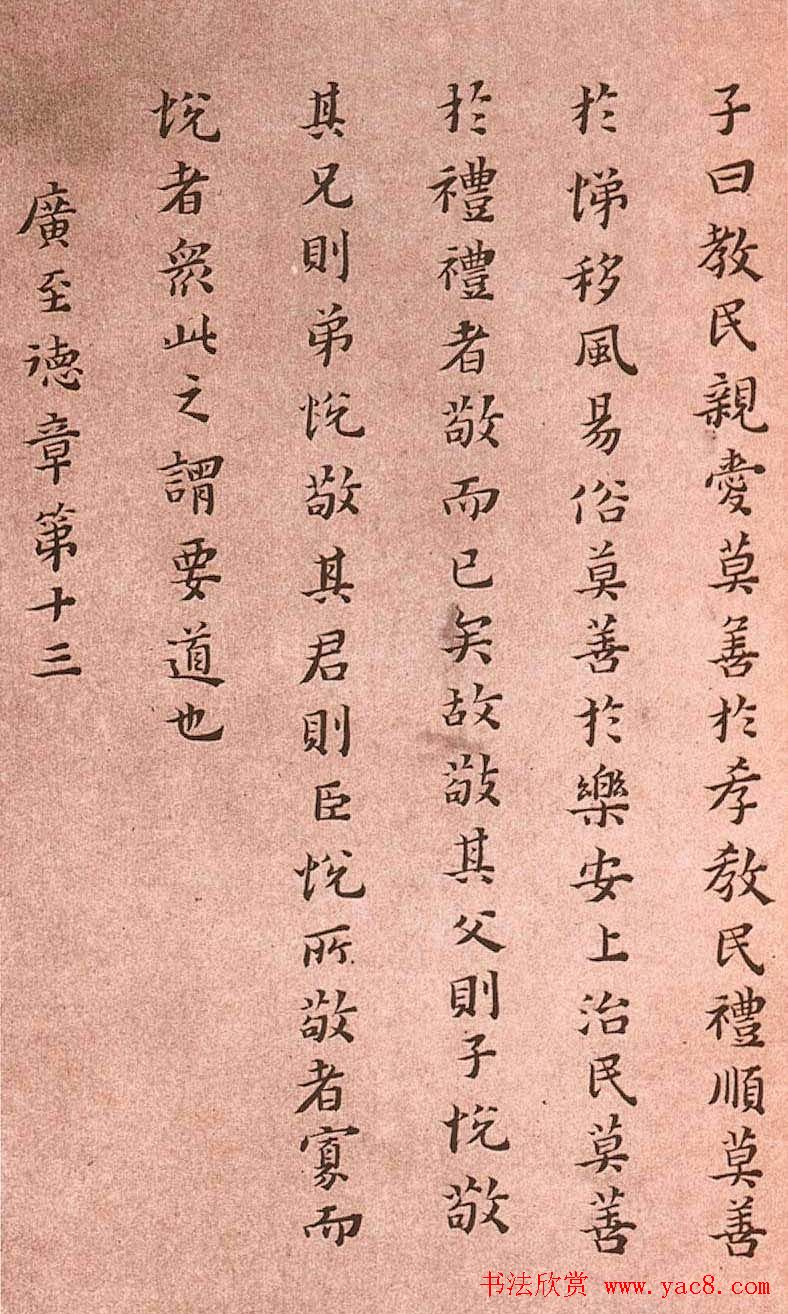 子曰教民親愛莫善於孝教民禮順莫善
於悌移風易俗莫善於樂安上治民莫善
於禮禮者敬而已矣故敬其父則子悅敬
其兄則弟悅敬其君則臣悅所敬者寡而
悅者眾此之謂要道也
廣至德章第十三
书法欣赏 www.yac8.com